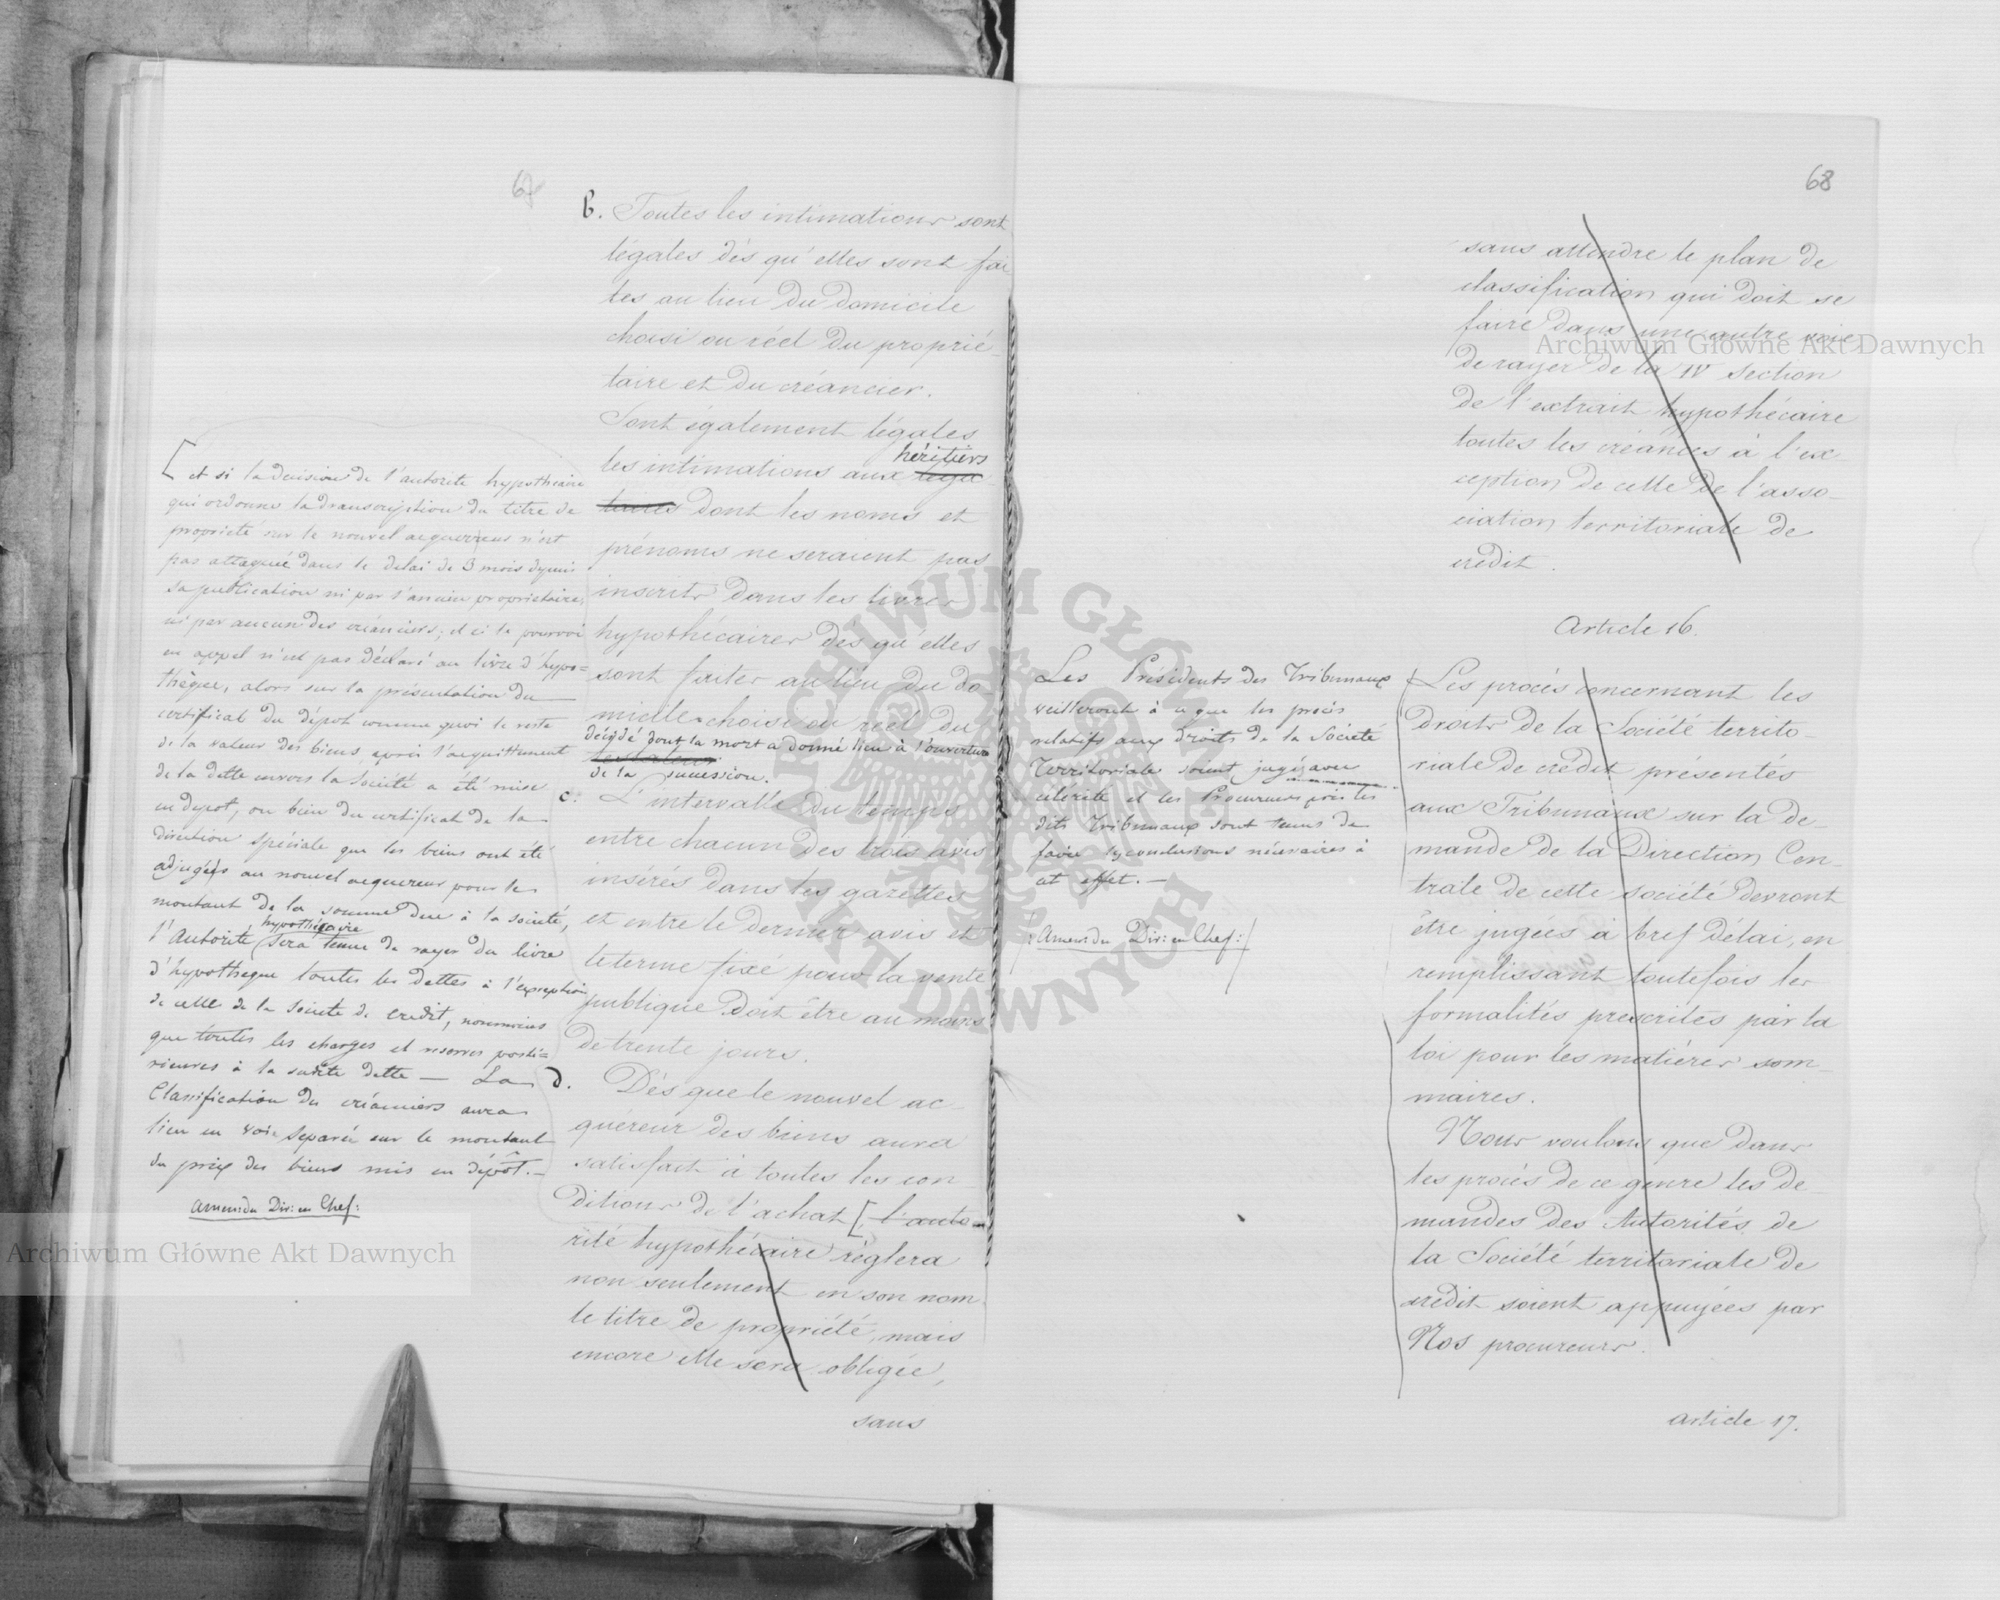 67
b. Toutes les intimations sont
légales dès qu'elles sont fai
tes au lieu du domicile
choisi ou réel du proprié-
taire et du créancier.
Sont également légales
héritiers
les intimations aux léga-
taires dont les noms et
prénoms ne seraient pas
inscrits dans les livres
hypothécaires dès qu'elles
sont faites au lieu du do
micile choisi ou réel du
décédé dont la mort a donné lieu à l'ouverture
de la succession.
c. L'intervalle du temps
entre chacun des trois avis
insérés dans les gazettes
et entre le dernier avis et
le terme fixé pour la vente
publique doit être au moins
de trente jours.
d. Dès que le nouvel ac-
quéreur des biens aura
satisfait à toutes les con-
ditions de l'achat [l'auto-
rité hypothécaire réglera
non seulement en son nom
le titre de propriété, mais
encore elle sera obligée,
sans
[et si la décision de l'autorité hypothécaire
qui ordonne la transcription du titre de
propriété sur le nouvel acquereur n'est
pas attaquée dans le délai de 3 mois depuis
sa publication ni par l'ancien propriétaire,
ni par aucun des créanciers; et si le pourvoi
en appel n'est pas déclaré au livre d'hypo=
thèque, alors sur la présentation du
certificat du dépôt comme quoi le reste
de la valeur des biens après l'acquittement
de la dette envers la Société a été mise
en depot, ou bien du certificat de la
direction spéciale que les biens ont été
adjugés au nouvel acquereur pour le
montant de la somme due à la société,
hypothécaire
l'Autorité sera tenue de rayer du livre
d'hypothèque toutes les dettes à l'exception
de celle de la Société de credit, nonmoins
que toutes les charges et reserves posté=
rieures à la susdite dette — La
Classification des créanciers aura
lieu en voie separée sur le montant
du prix des biens mis en dépôt. —
Amend: du Dir: en Chef:
68
sans attendre le plan de
classification qui doit se
faire dans une autre voie
de rayer de la IV section
de l'extrait hypothécaire
toutes les créances à l'ex-
ception de celle de l'asso-
ciation territoriale de
crédit.
Article 16.
Les Présidents des Tribunaux
veilleront à ce que les procès
relatifs aux droits de la Société
Territoriale soient jugés avec
célérité et les Procureurs près les
dits Tribunaux sont tenus de
faire les conclusions nécessaires à
cet effet. —
/:Amend: du Dir: en Chef:/
Les procès concernant les
droits de la Société territo-
riale de crédit présentés
aux Tribunaux sur la de-
mande de la Direction Cen-
trale de cette société devront
être jugés à bref délai, en
remplissant toutefois les
formalités prescrites par la
loi pour les matières som-
maires.
Nous voulons que dans
les procès de ce genre les de-
mandes des Autorités de
la Société territoriale de
crédit soient appuyées par
Nos procureurs.
Article 17.
Archiwum Główne Akt Dawnych
Archiwum Główne Akt Dawnych
ARCHIWUM GŁÓWNE AKT DAWNYCH